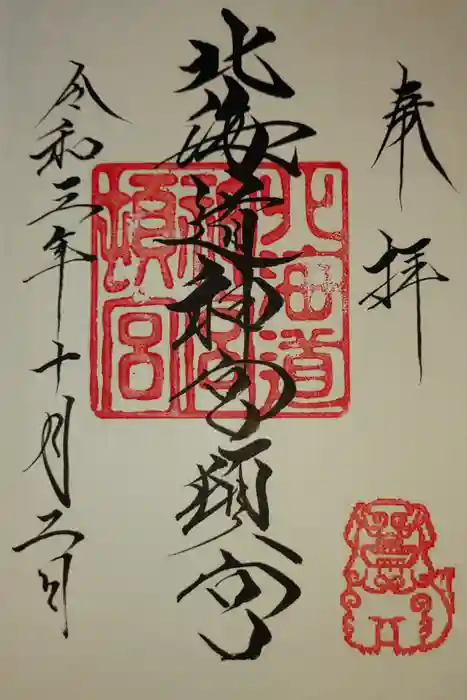 奉拝
北海道神宮頓宮
北海道神宮頓宮
令和三年十月二日